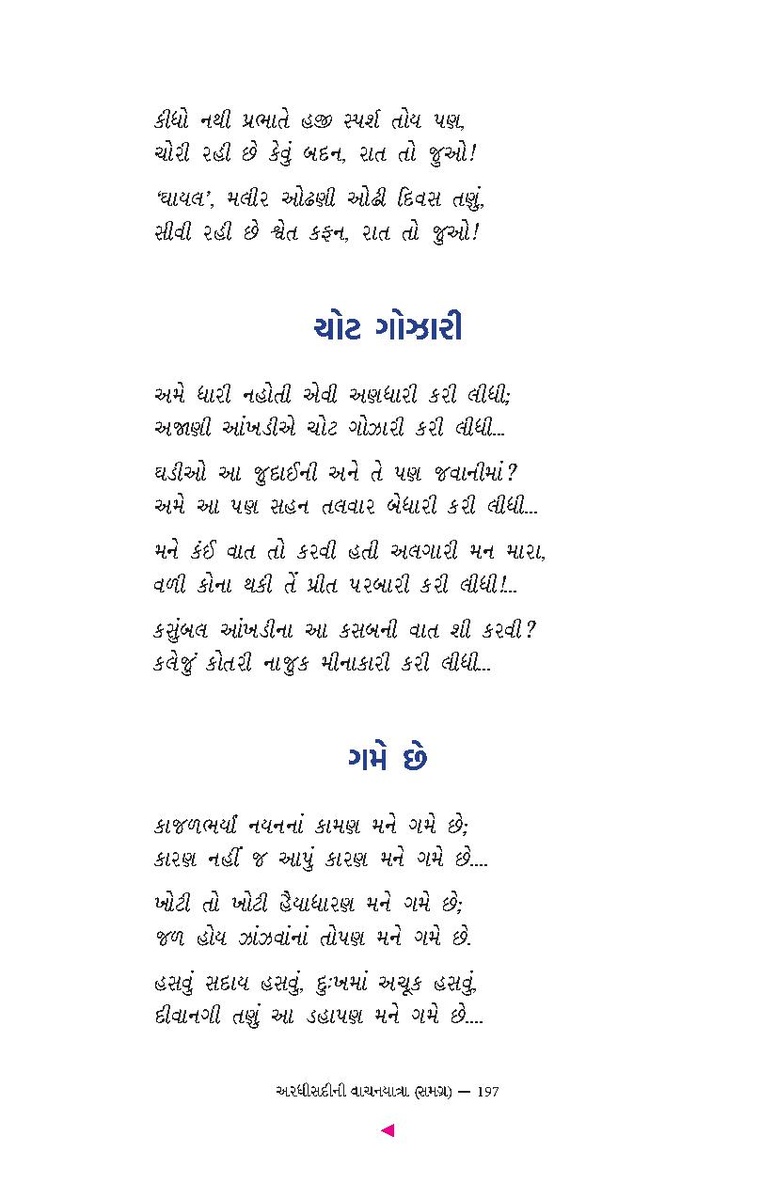 કીધો નથી પ્રભાતે હજી સ્પર્શ તોય પણ,
ચોરી રહી છે કેવું બદન, રાત તો જુઓ!
‘ઘાયલ’, મલીર ઓઢણી ઓઢી દિવસ તણું,
સીવી રહી છે શ્વેત કફન, રાત તો જુઓ!
ચોટ ગોઝારી
અમે ધારી નહોતી એવી અણધારી કરી લીધી;
અજાણી આંખડીએ ચોટ ગોઝારી કરી લીધી...
ઘડીઓ આ જુદાઈની અને તે પણ જવાનીમાં?
અમે આ પણ સહન તલવાર બેધારી કરી લીધી...
મને કંઈ વાત તો કરવી હતી અલગારી મન મારા,
વળી કોના થકી તેં પ્રીત પરબારી કરી લીધી!...
કસુંબલ આંખડીના આ કસબની વાત શી કરવી?
કલેજું કોતરી નાજુક મીનાકારી કરી લીધી...
ગમે છે
કાજળભર્યાં નયનનાં કામણ મને ગમે છે;
કારણ નહીં જ આપું કારણ મને ગમે છે....
ખોટી તો ખોટી હૈયાધારણ મને ગમે છે;
જળ હોય ઝાંઝવાંનાં તોપણ મને ગમે છે.
હસવું સદાય હસવું, દુઃખમાં અચૂક હસવું,
દીવાનગી તણું આ ડહાપણ મને ગમે છે....
અરધીસદીની વાચનયાત્રા (સમગ્ર) — 197